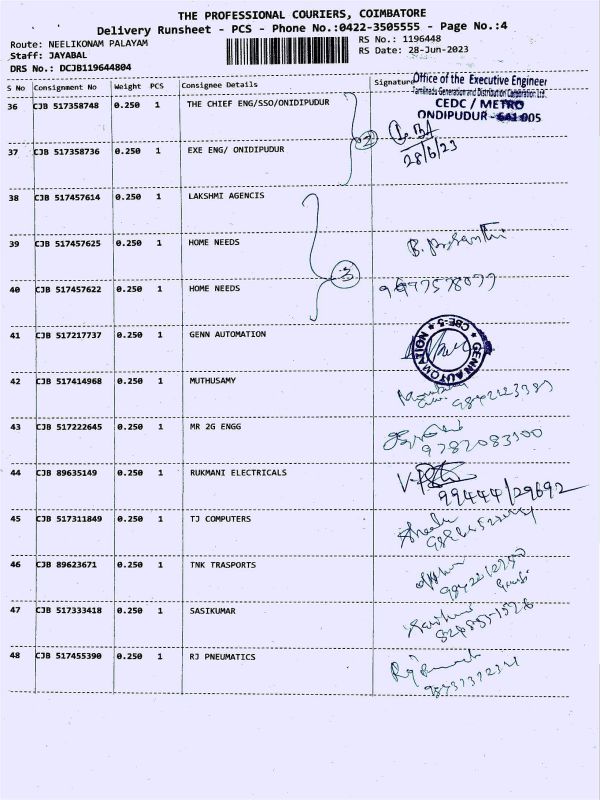 THE PROFESSIONAL COURIERS, COIMBATORE
Delivery Runsheet - PCS - Phone No.:0422-3505555 - Page No.:4
Route: NEELIKONAM PALAYAM
RS No.: 1196448
Staff: JAYABAL
RS Date: 28-Jun-2023
DRS No.: DCJB119644804
S No Consignment No Weight PCS Consignee Details Signature
Office of the Executive Engineer
Tamilnadu Generation and Distribution Corporation Ltd.
CEDC / METRO
ONDIPUDUR - 641 005
36 CJB 517358748 0.250 1 THE CHIEF ENG/SSO/ONIDIPUDUR
2
28/6/23
37 CJB 517358736 0.250 1 EXE ENG/ ONIDIPUDUR
38 CJB 517457614 0.250 1 LAKSHMI AGENCIS
39 CJB 517457625 0.250 1 HOME NEEDS
3
40 CJB 517457622 0.250 1 HOME NEEDS
41 CJB 517217737 0.250 1 GENN AUTOMATION
GENN AUTOMATION * CBE-5 *
42 CJB 517414968 0.250 1 MUTHUSAMY
43 CJB 517222645 0.250 1 MR 2G ENGG
44 CJB 89635149 0.250 1 RUKMANI ELECTRICALS
99444/29692
45 CJB 517311849 0.250 1 TJ COMPUTERS
46 CJB 89623671 0.250 1 TNK TRASPORTS
47 CJB 517333418 0.250 1 SASIKUMAR
48 CJB 517455390 0.250 1 RJ PNEUMATICS